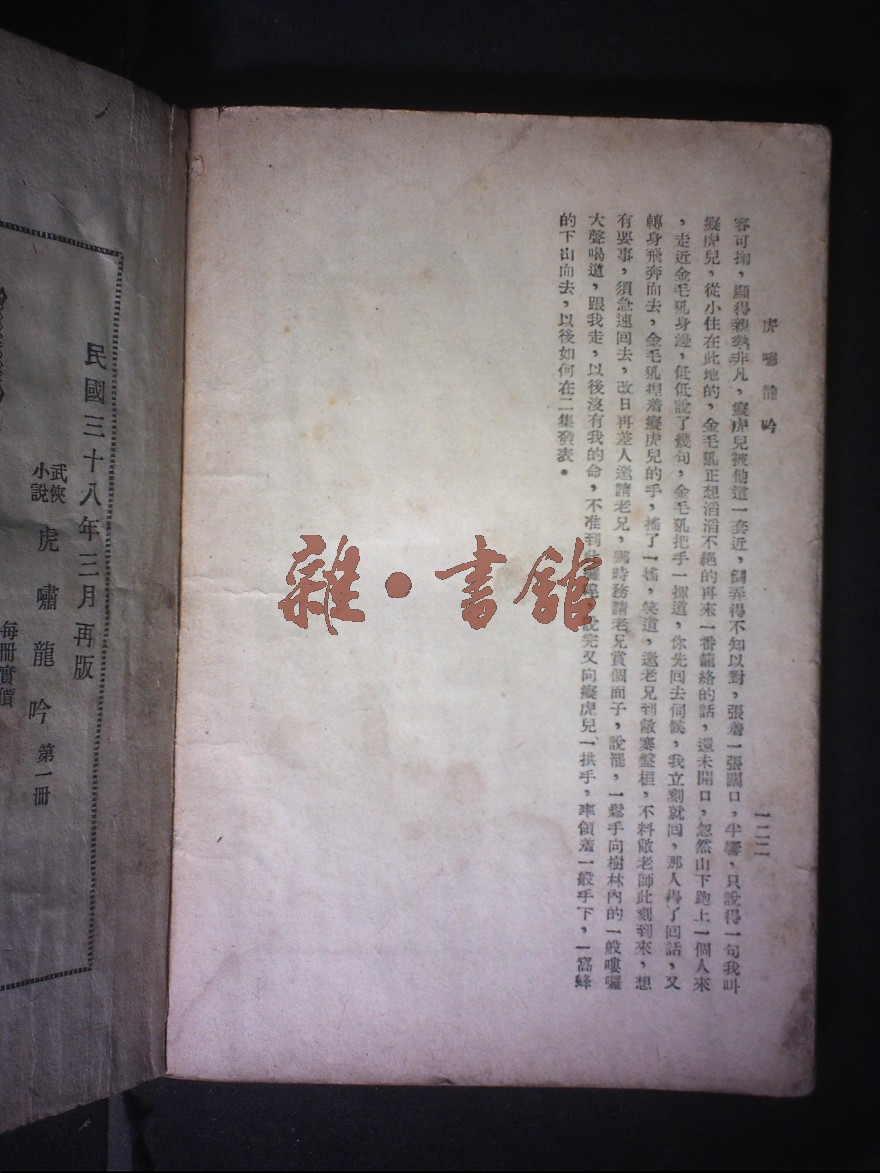 虎嘯龍吟
一二二
容可掬，顯得親熱非凡，癡虎兒被他這一套近，倒弄得不知以對，張着一張闊口，半響，只說得一句我叫
癡虎兒，從小住在此地的，金毛犼正想滔滔不絕的再來一番籠絡的話，還未開口，忽然山下跑上一個人來
，走近金毛犼身邊，低低說了幾句，金毛犼把手一揮道，你先回去伺候，我立刻就回，那人得了回話，又
轉身飛奔而去，金毛犼捏着癡虎兒的手，搖了一搖，笑道，邀老兄到敝寨盤桓，不料敝老師此刻到來，想
有要事，須急速回去，改日再差人邀請老兄，那時務請老兄賞個面子，說罷，一鬆手向樹林內的一般嘍囉
大聲喝道，跟我走，以後沒有我的命，不准到此囉唣，說完又向癡虎兒一拱手，率領着一般手下，一窩蜂
的下山而去，以後如何在二集發表。
民國三十八年三月再版
武俠小說 虎嘯龍吟 第一冊
每冊實價
雜·書館